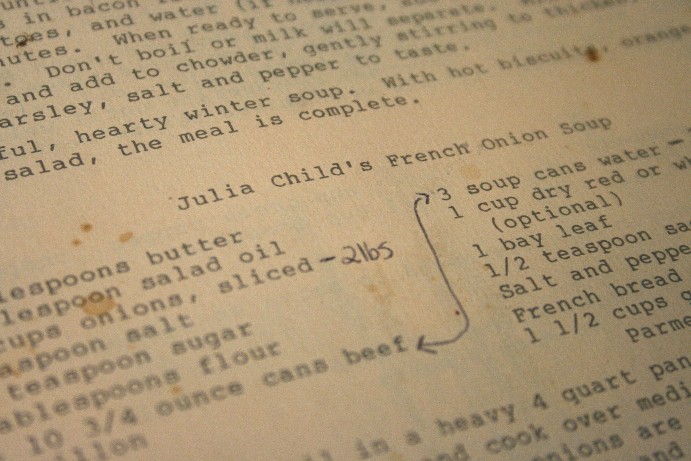 in bacon
and water (if
When ready to serve,
Don't boil or milk will separate.
and add to chowder, gently stirring to
salt and pepper to taste.
hearty winter soup. With hot biscuits, orange
salad, the meal is complete.
Julia Child's French Onion Soup
butter
salad oil
onions, sliced - 2lbs
salt
teaspoon sugar
flour
10 3/4 ounce cans beef
3 soup cans water -
1 cup dry red or
(optional)
1 bay leaf
1/2 teaspoon
Salt and
French bread
1 1/2 cups
in a heavy 4 quart pan
and cook over
onions are
and